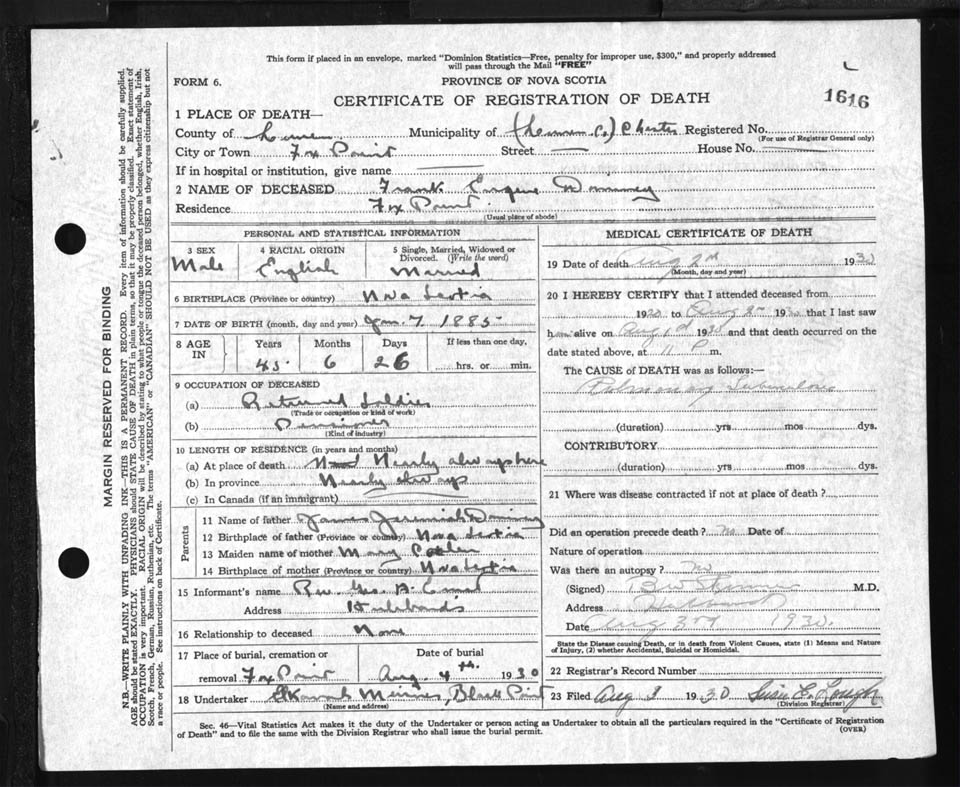 This form if placed in an envelope, marked "Dominion Statistics—Free, penalty for improper use, $300," and properly addressed
will pass through the Mail "FREE"
FORM 6. PROVINCE OF NOVA SCOTIA
CERTIFICATE OF REGISTRATION OF DEATH 1616
1 PLACE OF DEATH—
County of Municipality of Chester Registered No.
(For use of Registrar General only)
City or Town Fox Point Street — House No.
If in hospital or institution, give name
2 NAME OF DECEASED Frank Eugene
Residence Fox Point
(Usual place of abode)
PERSONAL AND STATISTICAL INFORMATION
3 SEX 4 RACIAL ORIGIN 5 Single, Married, Widowed or
Divorced. (Write the word)
Male English Married
6 BIRTHPLACE (Province or country) Nova Scotia
7 DATE OF BIRTH (month, day and year) Jan. 7. 1885
8 AGE IN Years Months Days If less than one day,
45 6 26 hrs. or min.
9 OCCUPATION OF DECEASED
(a) Returned Soldier
(Trade or occupation or kind of work)
(b) Pensioner
(Kind of industry)
10 LENGTH OF RESIDENCE (in years and months)
(a) At place of death Nearly always here
(b) In province Nearly always
(c) In Canada (if an immigrant)
Parents
11 Name of father James Jeremiah
12 Birthplace of father (Province or country) Nova Scotia
13 Maiden name of mother Mary
14 Birthplace of mother (Province or country) Nova Scotia
15 Informant's name Rev Geo. A.
Address Hubbards
16 Relationship to deceased None
17 Place of burial, cremation or Date of burial
removal Fox Point Aug. 4th. 1930
18 Undertaker Point
(Name and address)
MEDICAL CERTIFICATE OF DEATH
19 Date of death Aug 2nd 1930
(Month, day and year)
20 I HEREBY CERTIFY that I attended deceased from
1920 to Aug 2nd 1930 that I last saw
him alive on Aug 1st 1930 and that death occurred on
date stated above, at 11 P m.
The CAUSE of DEATH was as follows:—
Pulmonary Tuberculosis
(duration) yrs mos dys.
CONTRIBUTORY
(duration) yrs mos dys.
21 Where was disease contracted if not at place of death?
Did an operation precede death? no Date of
Nature of operation
Was there an autopsy? no
(Signed) B W Skinner M.D.
Address Hubbards
Date Aug 3rd 1930.
State the Disease causing Death, or in death from Violent Causes, state (1) Means and Nature
of Injury, (2) whether Accidental, Suicidal or Homicidal.
22 Registrar's Record Number
23 Filed Aug 1930 Susie E.
(Division Registrar)
Sec. 46—Vital Statistics Act makes it the duty of the Undertaker or person acting as Undertaker to obtain all the particulars required in the "Certificate of Registration
of Death" and to file the same with the Division Registrar who shall issue the burial permit. (OVER)
MARGIN RESERVED FOR BINDING
N.B.—WRITE PLAINLY WITH UNFADING INK—THIS IS A PERMANENT RECORD. Every item of information should be carefully supplied.
AGE should be stated EXACTLY. PHYSICIANS should STATE CAUSE OF DEATH in plain terms, so that it may be properly classified. Exact statement of
OCCUPATION is very important. RACIAL ORIGIN will be described by stating to what people or tongue the deceased person belonged, whether English, Irish,
Scotch, French, German, Russian, Ruthenian, etc. The terms "AMERICAN" or "CANADIAN" SHOULD NOT BE USED as they express citizenship but not
a race or people. See instructions on back of Certificate.